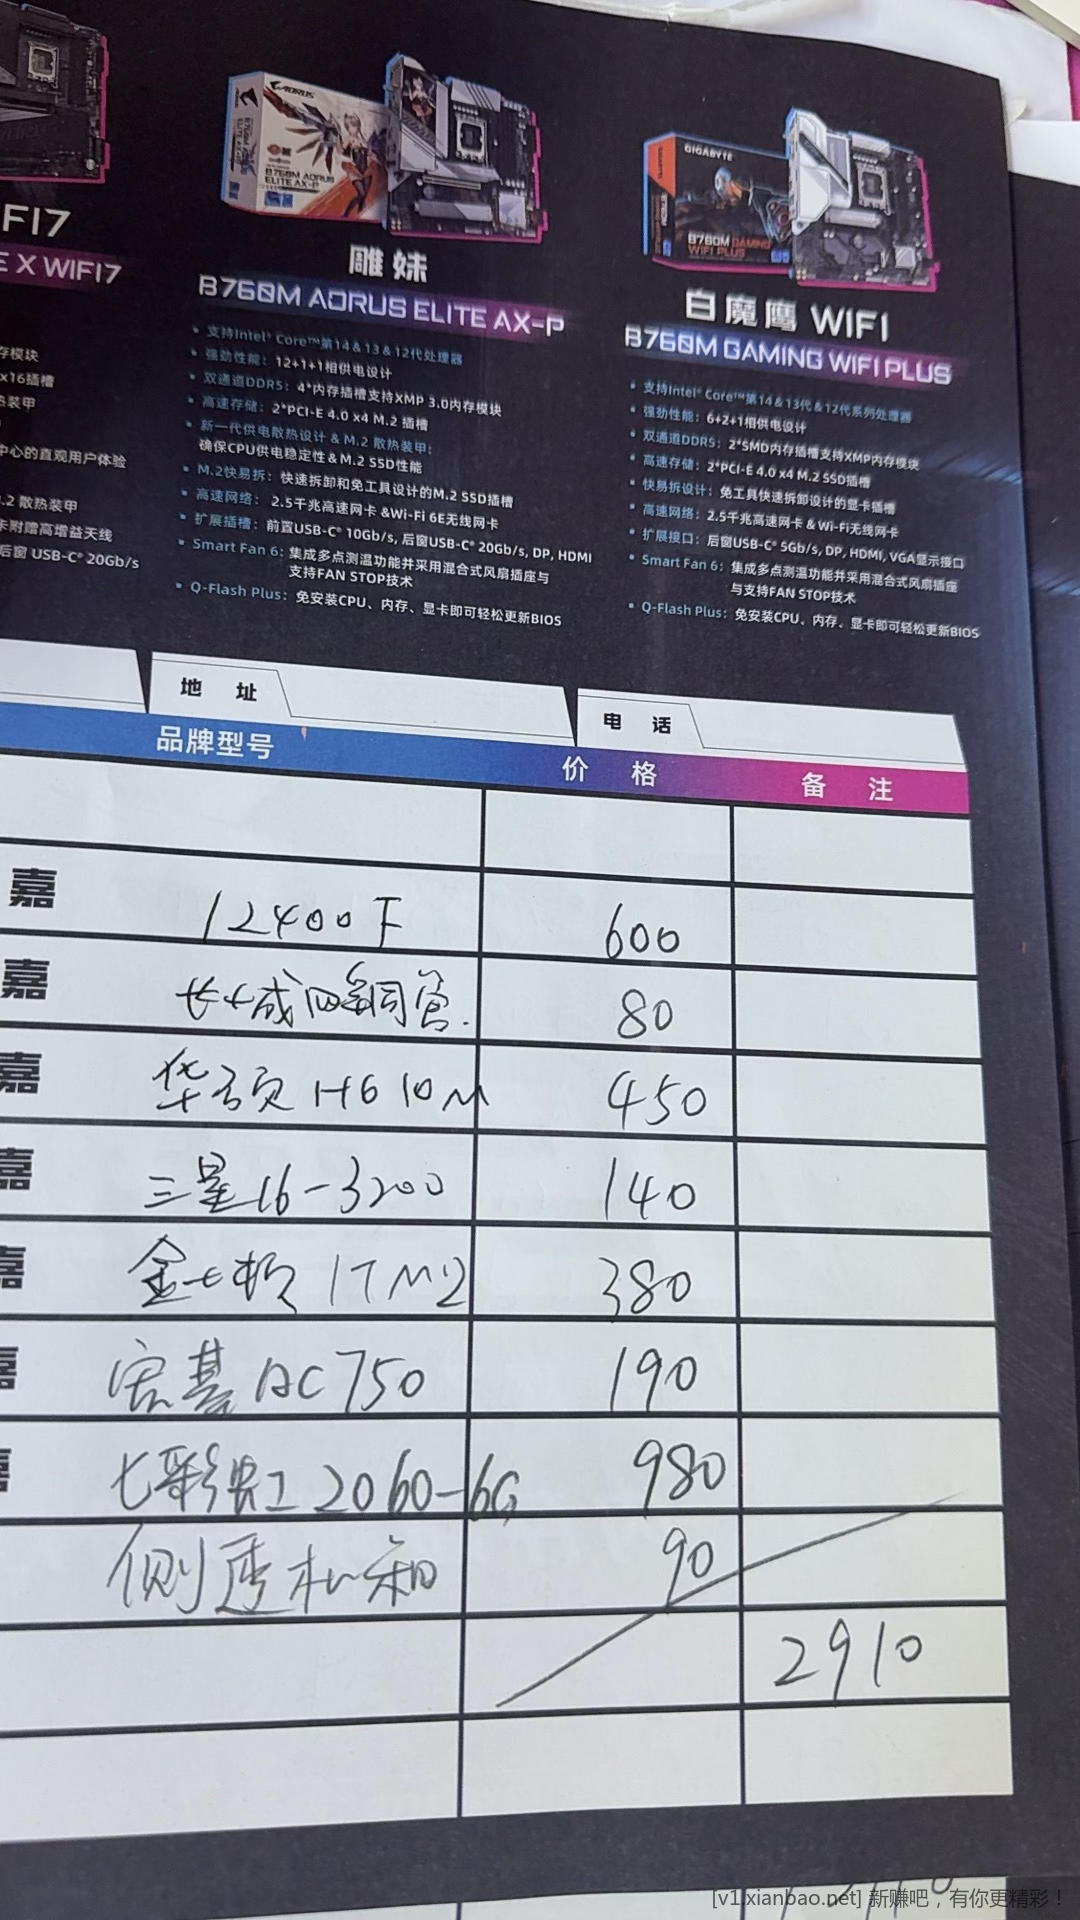 FI7
E X WIFI7
存模块
x16插槽
热装甲
中心的直观用户体验
.2 散热装甲
卡附赠高增益天线
后窗 USB-C® 20Gb/s
AORUS
B760M AORUS
ELITE AX-P
雕妹
B760M AORUS ELITE AX-P
• 支持Intel® Core™第14&13&12代处理器
• 强劲性能：12+1+1相供电设计
• 双通道DDR5：4*内存插槽支持XMP 3.0内存模块
• 高速存储：2*PCI-E 4.0 x4 M.2 插槽
• 新一代供电散热设计 & M.2 散热装甲:
确保CPU供电稳定性&M.2 SSD性能
• M.2快易拆：快速拆卸和免工具设计的M.2 SSD插槽
• 高速网络：2.5千兆高速网卡 &Wi-Fi 6E无线网卡
• 扩展插槽：前置USB-C® 10Gb/s, 后窗USB-C® 20Gb/s, DP, HDMI
• Smart Fan 6：集成多点测温功能并采用混合式风扇插座与
支持FAN STOP技术
• Q-Flash Plus：免安装CPU、内存、显卡即可轻松更新BIOS
GIGABYTE
B760M GAMING
WIFI PLUS
白魔鹰 WIFI
B760M GAMING WIFI PLUS
• 支持Intel® Core™第14&13代&12代系列处理器
• 强劲性能：6+2+1相供电设计
• 双通道DDR5：2*SMD内存插槽支持XMP内存模块
• 高速存储：2*PCI-E 4.0 x4 M.2 SSD插槽
• 快易拆设计：免工具快速拆卸设计的显卡插槽
• 高速网络：2.5千兆高速网卡 & Wi-Fi无线网卡
• 扩展接口：后窗USB-C® 5Gb/s, DP, HDMI, VGA显示接口
• Smart Fan 6：集成多点测温功能并采用混合式风扇插座
与支持FAN STOP技术
• Q-Flash Plus：免安装CPU、内存、显卡即可轻松更新BIOS
地 址
电 话
品牌型号 价 格 备 注
嘉 12400F 600
嘉 长城四铜管. 80
嘉 华硕 H610M 450
嘉 三星16-3200 140
嘉 金士顿 1T M2 380
嘉 宏碁AC750 190
嘉 七彩虹2060-6G 980
侧透机箱 90
2910
[v1.xianbao.net] 新赚吧，有你更精彩！